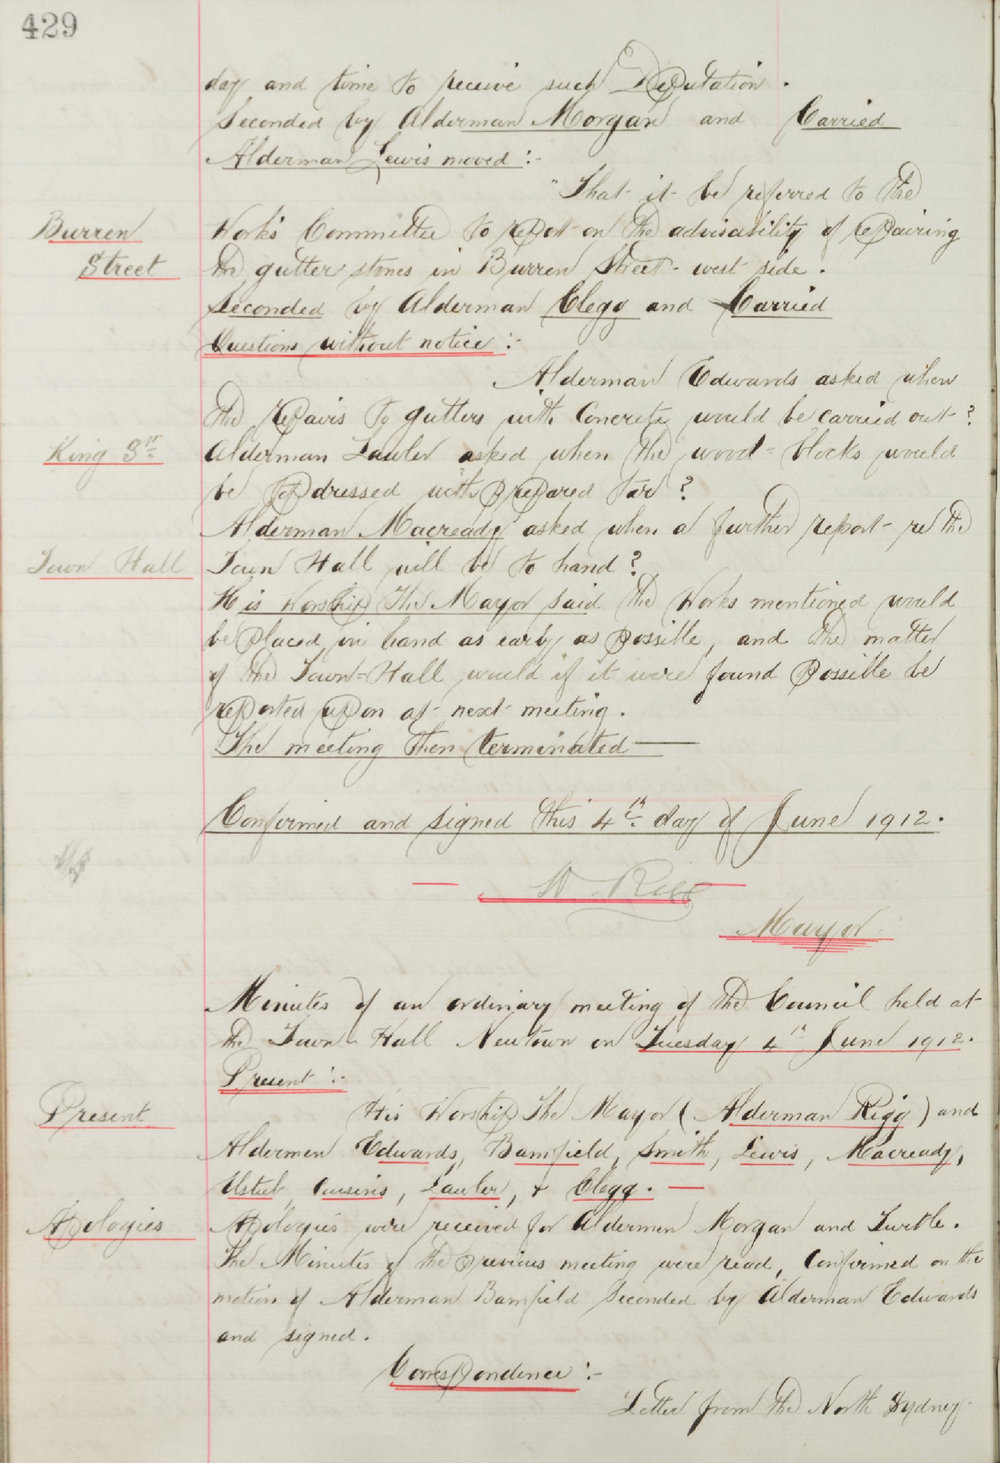 429
day and time to receive such Deputation.
Seconded by Alderman Morgan and Carried
Alderman Lewis moved :-
"That it be referred to the
Burren
Works Committee to report on the advisability of repairing
Street
the gutter stones in Burren Street - west side.
Seconded by Alderman Clegg and Carried
Questions without notice :-
Alderman Edwards asked when
the repairs to gutters with Concrete would be carried out ?
King St
Alderman Lawler asked when the wood-blocks would
be topdressed with prepared tar ?
Alderman Macready asked when a further report - re the
Town Hall
Town Hall will be to hand ?
His Worship The Mayor said the Works mentioned would
be placed in hand as early as possible, and the matter
of the Town-Hall would if it were found possible be
reported upon at next meeting.
The meeting then terminated —
Confirmed and signed this 4th day of June 1912.
W. Rigg
Mayor
Minutes of an ordinary meeting of the Council held at
the Town Hall Newtown on Tuesday 4th June 1912.
Present :-
Present
His Worship The Mayor (Alderman Rigg) and
Aldermen Edwards, Bamfield, Smith, Lewis, Macready,
, Lawler, & Clegg. —
Apologies
Apologies were received for Aldermen Morgan and Turtle.
The Minutes of the previous meeting were read, Confirmed on the
motion of Alderman Bamfield Seconded by Alderman Edwards
and signed.
Correspondence :-
Letter from the North Sydney